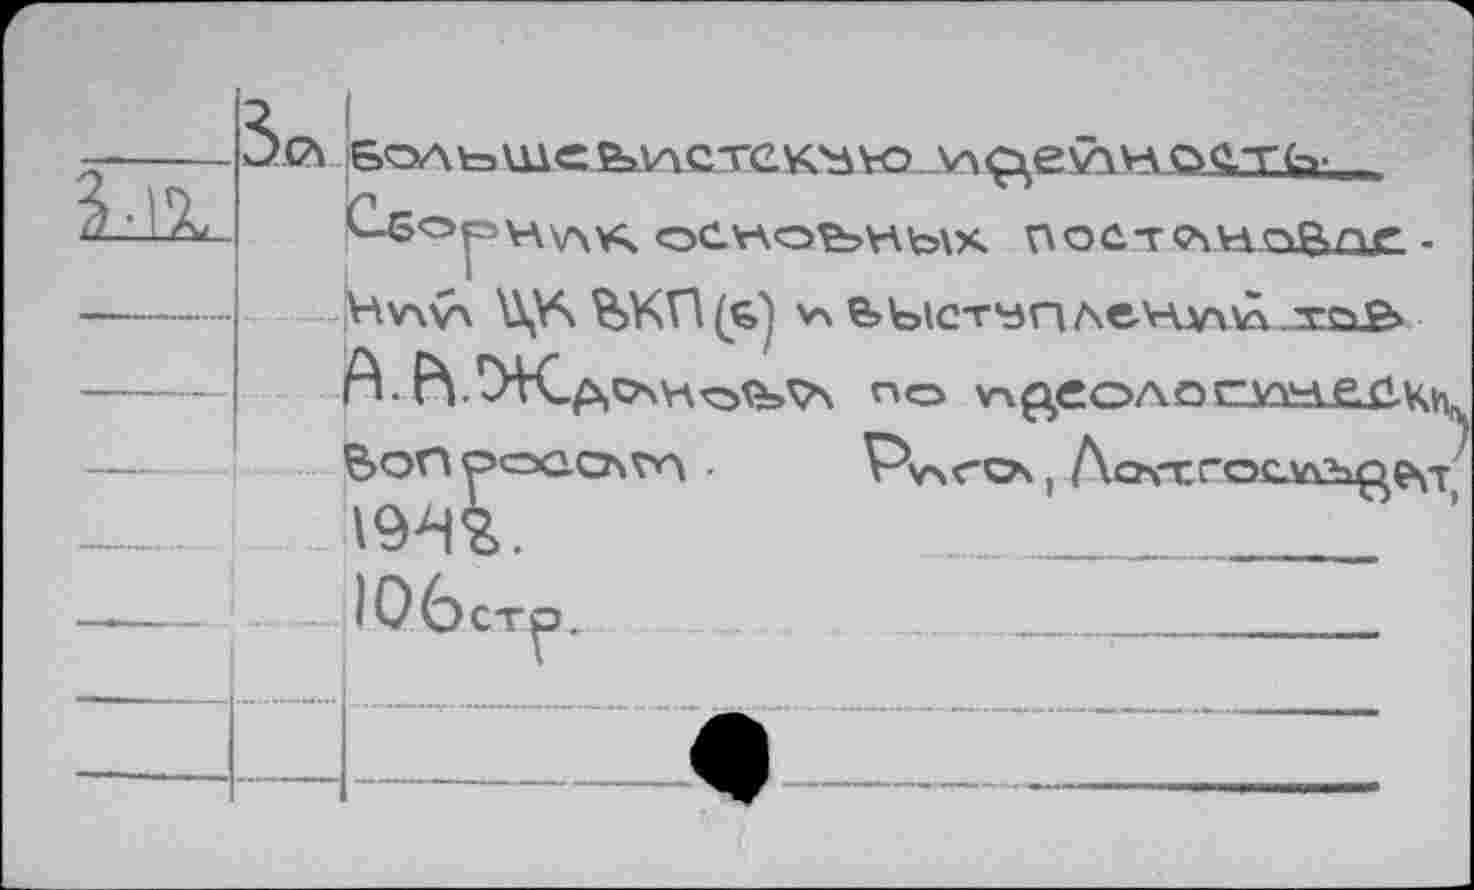 За большевистскую идейность.
3.12
Сборник основных постановле-
ний ЦК ВКП(б) и выступлений тов
А.А.Жданова по идеологически
вопросам. Рига, Латгосиздат,
1948.
106стр.